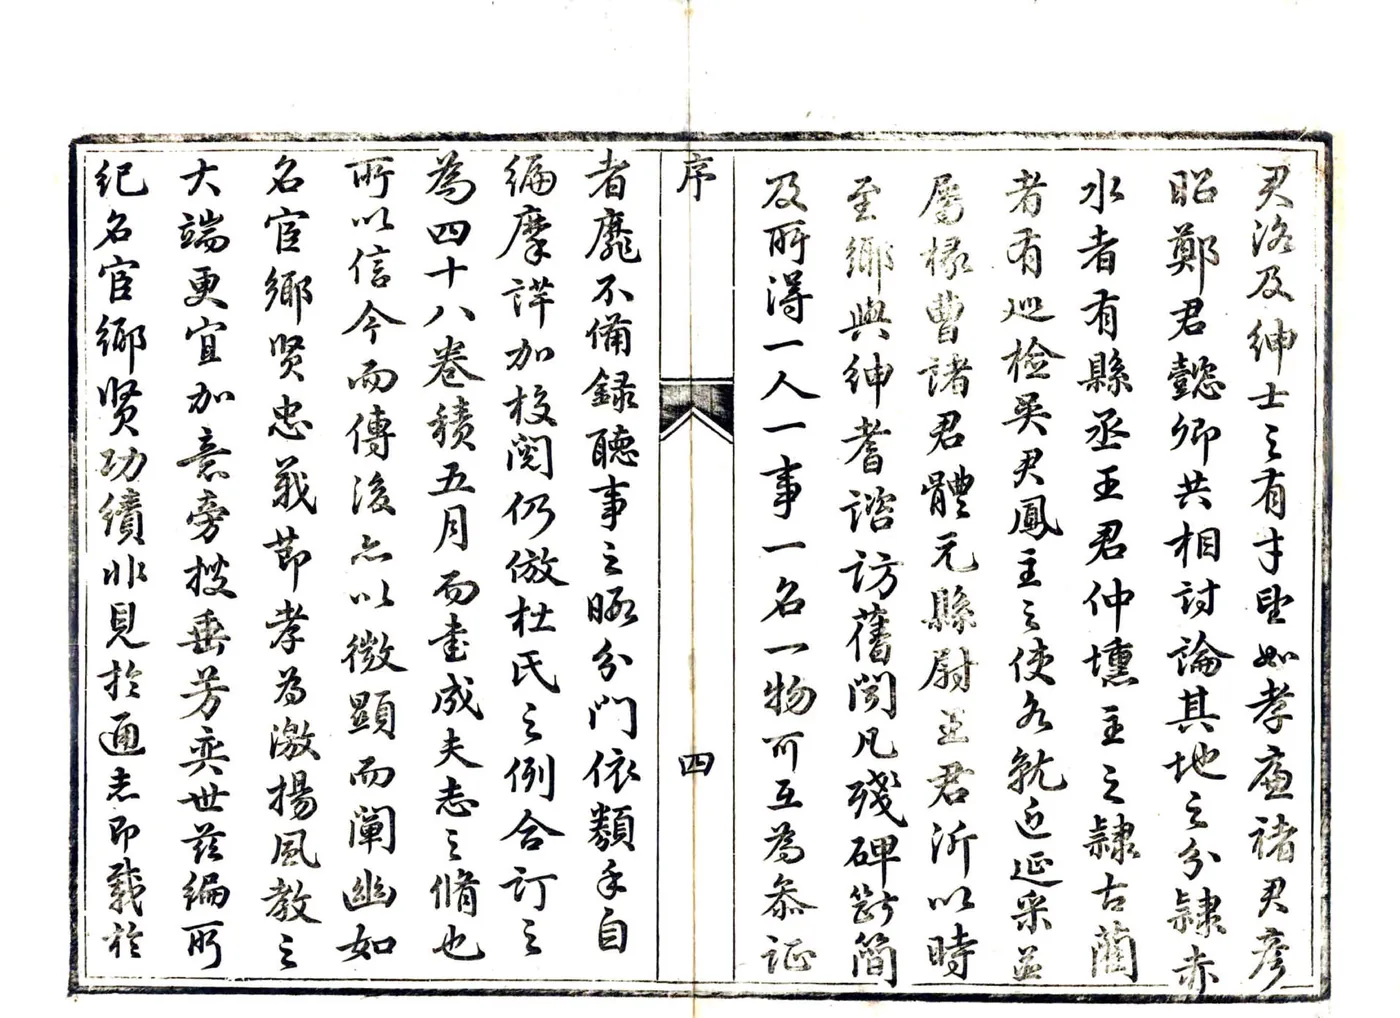 尹洛及紳士之有才望如孝廉禇君彦
昭鄭君懿卿共相討論其地之分隷赤
水者有縣丞王君仲壎主之隷古藺
者有巡檢吳君鳳主之使各就近延采並
屬椽曹諸君體元縣尉王君沂以時
至鄉與紳耆諮訪舊聞凡殘碑斷簡
及所得一人一事一名一物可互為叅证
序
四
者靡不備録聽事之暇分門依類手自
編摩詳加校閱仍倣杜氏之例合訂之
為四十八卷積五月而書成夫志之脩也
所以信今而傳後亦以微顯而闡幽如
名宦鄉贤忠義節孝為激揚風教之
大端更宜加意旁搜垂芳奕世兹編所
纪名宦鄉贤功績非見於通志即载於